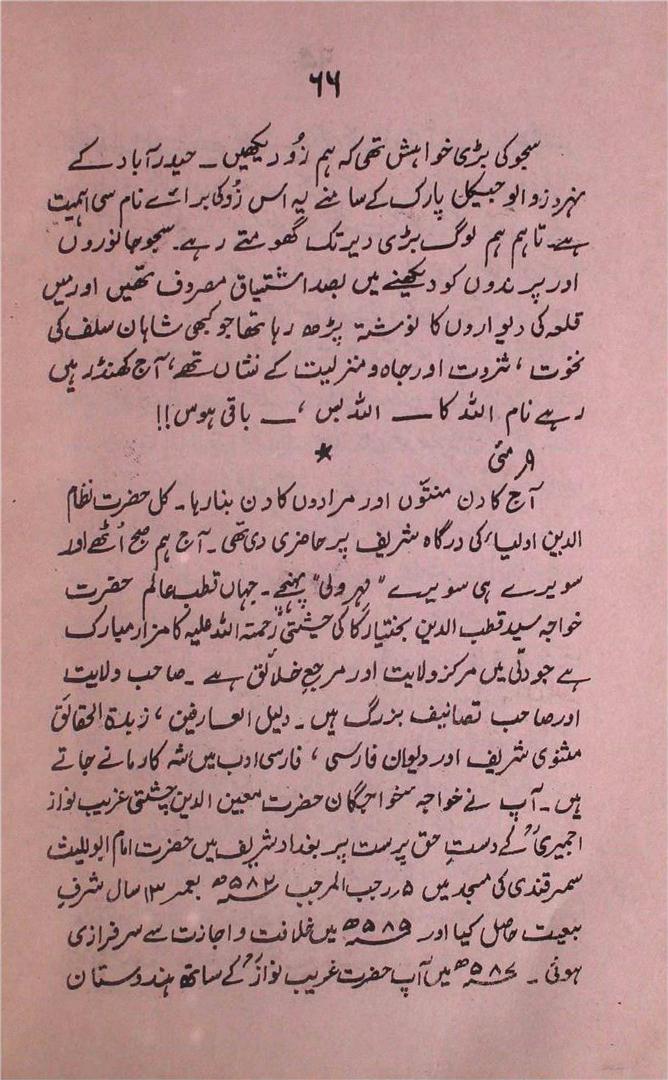 ۶۶
سجو کی بڑی خواہش تھی کہ ہم زُو دیکھیں ۔ حیدرآباد کے
نہرو زوالوجیکل پارک کے سامنے یہ اس زُو کی برائے نام سی اہمیت
ہے۔ تاہم ہم لوگ بڑی دیر تک گھومتے رہے۔ سجو جانوروں
اور پرندوں کو دیکھنے میں بصد اشتیاق مصروف تھیں اور میں
قلعہ کی دیواروں کا نوشتہ پڑھ رہا تھا جو کبھی شاہان سلف کی
نخوت ، ثروت اور جاہ و منزلیت کے نشاں تھے، آج کھنڈر ہیں
رہے نام اللہ کا ــ اللہ بس ، ــ باقی ہوس !!
*
۹ر مئی
آج کا دن منتّوں اور مرادوں کا دن بنا رہا ۔ کل حضرت نظام
الدین اولیاء کی درگاہ شریف پر حاضری دی تھی ۔ آج ہم صبح اُٹھے اور
سویرے ہی سویرے " مہرولی" پہنچے ۔ جہاں قطب عالم حضرت
خواجہ سید قطب الدین بختیار کاکی چشتی رحمتہ اللہ علیہ کا مزار مبارک
ہے جو دلّی میں مرکز ولایت اور مرجع خلائق ہے ۔ صاحب ولایت
اور صاحب تصانیف بزرگ ہیں ۔ دلیل العارفین ، زبدۃ الحقائق
مثنوی شریف اور دیوان فارسی ، فارسی ادب میں شہ کار مانے جاتے
ہیں ۔ آپ نے خواجہ خواجگان حضرت معین الدین چشتی غریب نواز
اجمیریؒ کے دستِ حق پرست پر بغداد شریف میں حضرت امام ابو اللیث
سمرقندی کی مسجد میں ۵ر رجب المرجب ۵۸۲ھ بعمر ۱۳ سال شرفِ
بیعت حاصل کیا اور ۵۸۵ھ میں خلافت و اجازت سے سرفرازی
ہوئی ۔ ۵۸۷ھ میں آپ حضرت غریب نوازؒ کے ساتھ ہندوستان